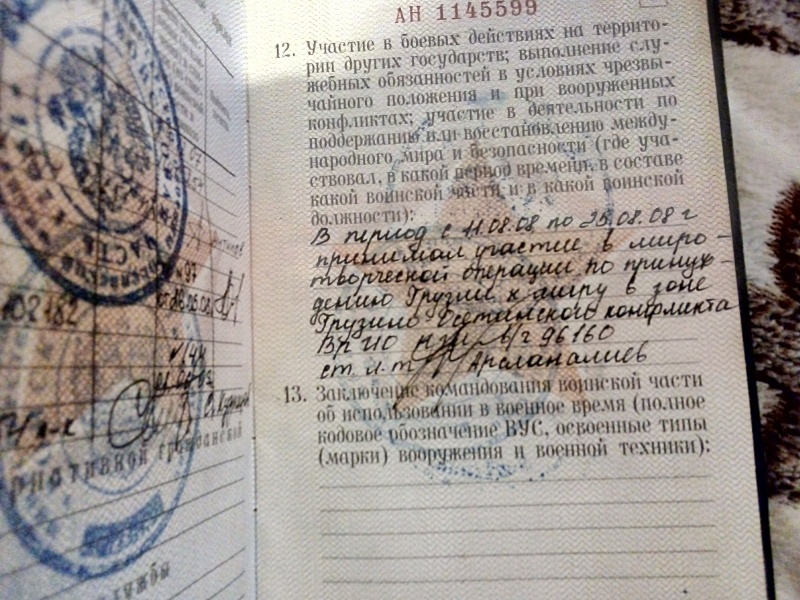 АН 1145599
12. Участие в боевых действиях на террито-
рии других государств; выполнение слу-
жебных обязанностей в условиях чрезвы-
чайного положения и при вооруженных
конфликтах; участие в деятельности по
поддержанию или восстановлению между-
народного мира и безопасности (где уча-
ствовал, в какой период времени, в составе
какой воинской части и в какой воинской
должности):
В период с 11.08.08 по 25.08.08 г
принимал участие в миро-
творческой операции по принуж-
дению Грузии к миру в зоне
Грузино Осетинского конфликта
Вр ИО НШ В/ч 96160
ст. л-т Арсланалиев
13. Заключение командования воинской части
об использовании в военное время (полное
кодовое обозначение ВУС, освоенные типы
(марки) вооружения и военной техники):
№ 97
02182
№ 144
службы